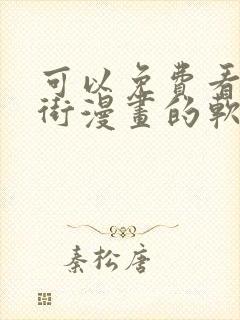 可以免费看
街漫畫的軟
秦松唐